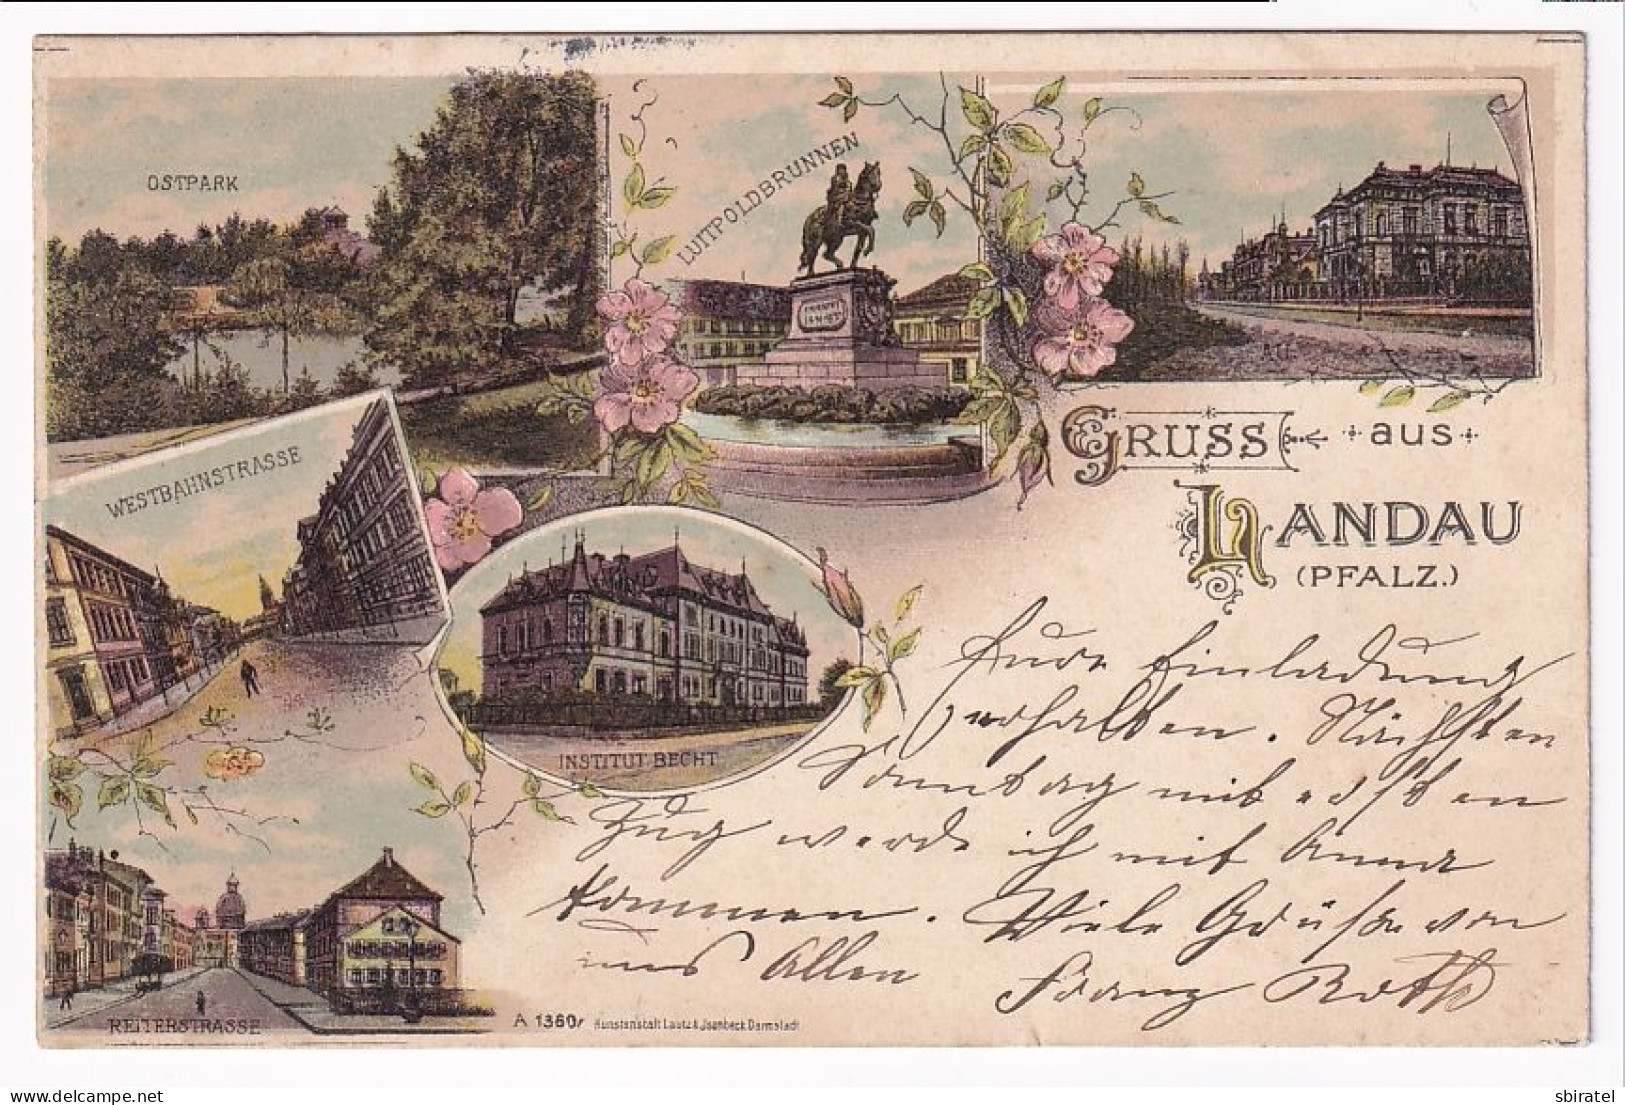 OSTPARK
LUITPOLDBRUNNEN
WESTBAHNSTRASSE
INSTITUT BECHT
REITERSTRASSE
GRUSS aus
LANDAU
(PFALZ.)
Eure Einladung
erhalten. Nächsten
Sonntag mit erstem
Zug werde ich mit Anna
kommen. Viele Grüße von
uns Allen Franz Roth
A 1360r Kunstanstalt Lautz & Jsenbeck Darmstadt
delcampe.net
sbiratel